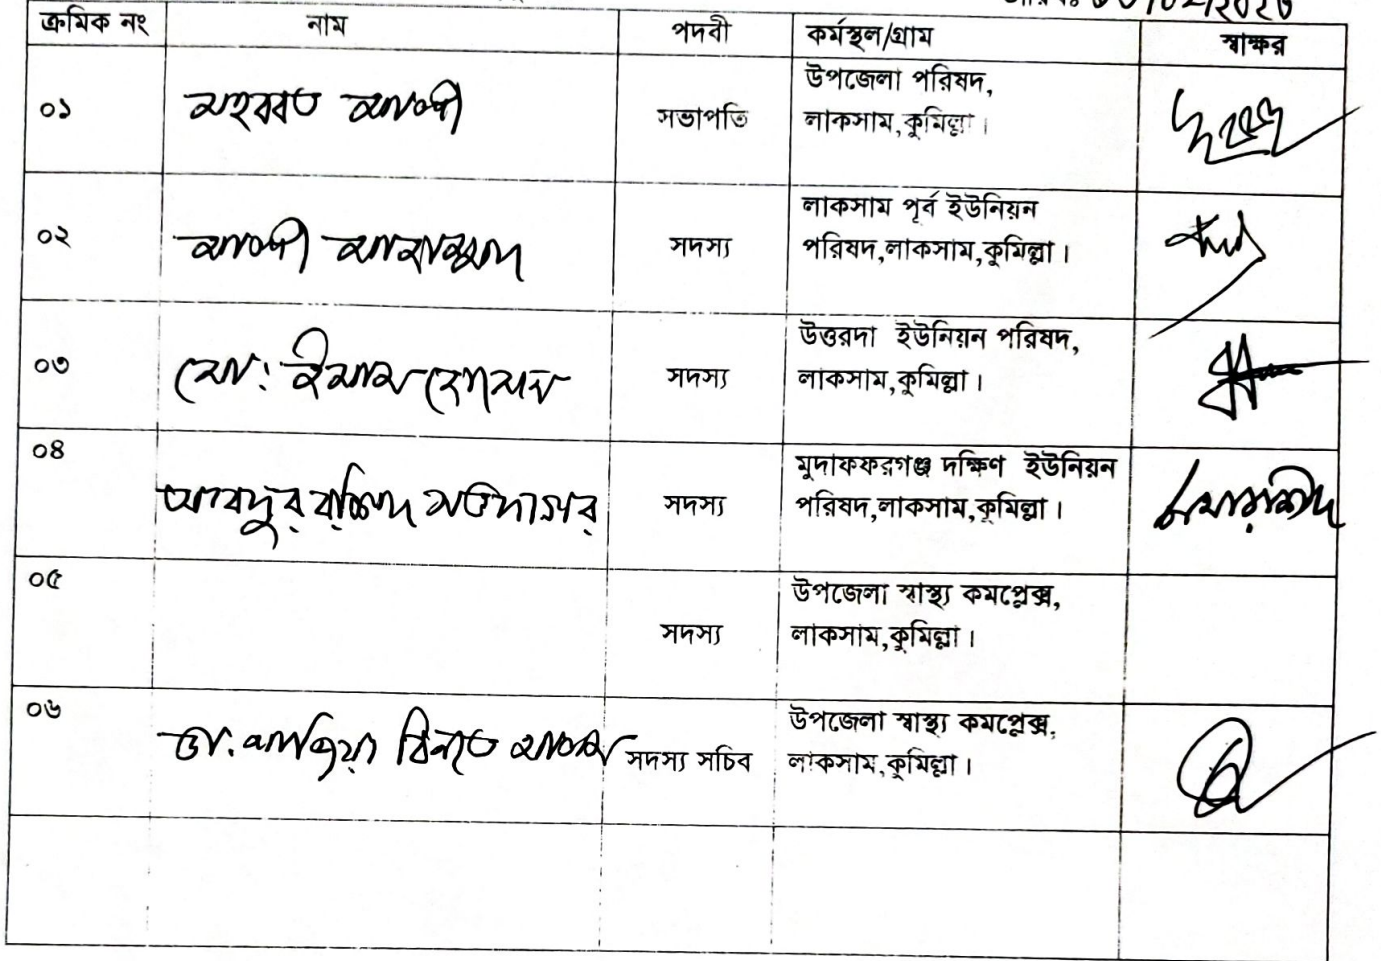 ক্রমিক নং নাম পদবী কর্মস্থল/গ্রাম স্বাক্ষর
০১ মহব্বত আলী সভাপতি উপজেলা পরিষদ,
লাকসাম,কুমিল্লা।
০২ আলী আহাম্মদ সদস্য লাকসাম পূর্ব ইউনিয়ন
পরিষদ,লাকসাম,কুমিল্লা।
০৩ মো: ইমাম হোসেন সদস্য উত্তরদা ইউনিয়ন পরিষদ,
লাকসাম,কুমিল্লা।
০৪ আবদুর রশিদ সওদাগর সদস্য মুদাফফরগঞ্জ দক্ষিণ ইউনিয়ন
পরিষদ,লাকসাম,কুমিল্লা।
০৫ সদস্য উপজেলা স্বাস্থ্য কমপ্লেক্স,
লাকসাম,কুমিল্লা।
০৬ ডা. নাজিয়া বিনতে আলম সদস্য সচিব উপজেলা স্বাস্থ্য কমপ্লেক্স,
লাকসাম,কুমিল্লা।